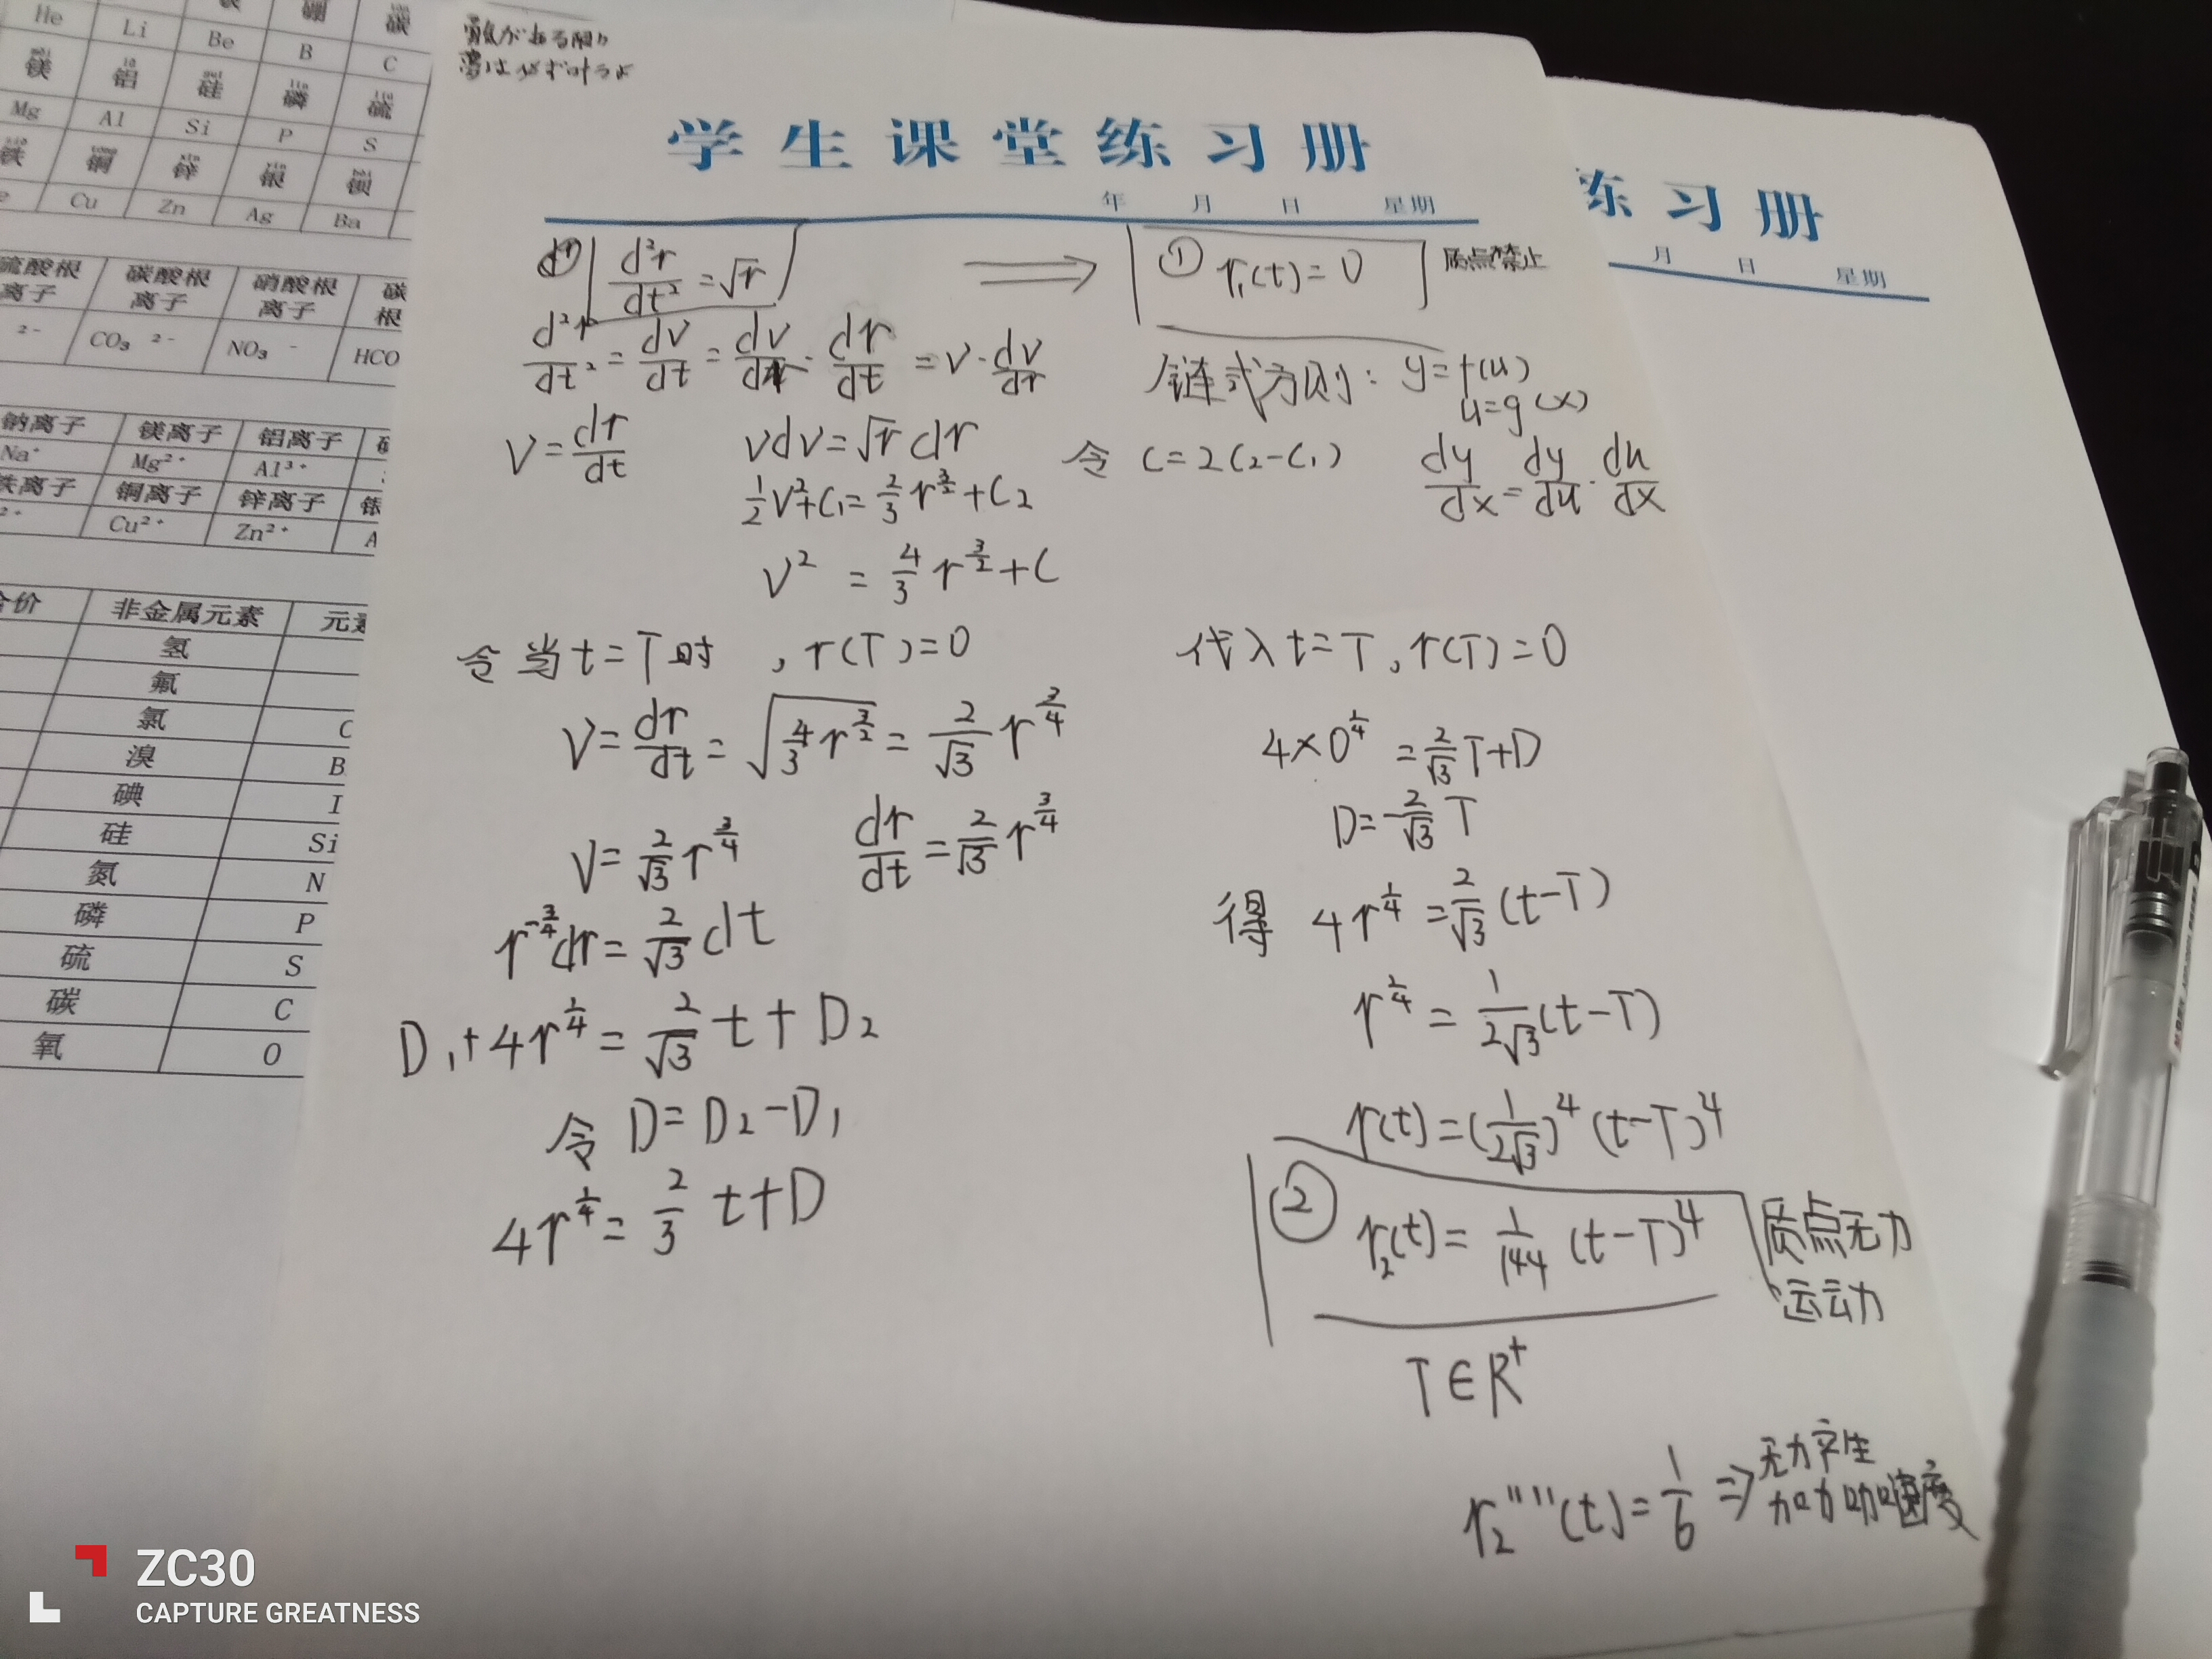 He Li Be B C
镁 铝 硅 磷 硫
Mg Al Si P S
铁 铜 锌 银 钡
Cu Zn Ag Ba
硫酸根离子 碳酸根离子 硝酸根离子 碳
根
2- CO₃ 2- NO₃ - HCO
钠离子 镁离子 铝离子
Na⁺ Mg²⁺ Al³⁺
铁离子 铜离子 锌离子 银
2+ Cu²⁺ Zn²⁺ A
合价 非金属元素 元素
氢
氟
氯 C
溴 B
碘 I
硅 Si
氮 N
磷 P
硫 S
碳 C
氧 O
勇気がある限り
夢は必ず叶うよ
学生课堂练习册
年 月 日 星期
练习册
月 日 星期
d²r/dt² = √r ⟹ ① r₁(t) = 0 质点禁止
d²r/dt² = dv/dt = dv/dr · dr/dt = v · dv/dr
链式方则: y = f(u)
u = g(x)
v = dr/dt vdv = √r dr 令 C = 2(C₂-C₁) dy/dx = dy/du · du/dx
1/2 v² + C₁ = 2/3 r^(3/2) + C₂
v² = 4/3 r^(3/2) + C
令当t=T时, r(T)=0
v = dr/dt = √(4/3 r^(3/2)) = 2/√3 r^(3/4)
v = 2/√3 r^(3/4) dr/dt = 2/√3 r^(3/4)
r^(-3/4) dr = 2/√3 dt
D₁ + 4r^(1/4) = 2/√3 t + D₂
令 D = D₂ - D₁
4r^(1/4) = 2/3 t + D
代入 t=T, r(T)=0
4×0^(1/4) = 2/√3 T + D
D = -2/√3 T
得 4r^(1/4) = 2/√3 (t-T)
r^(1/4) = 1/(2√3) (t-T)
r(t) = (1/(2√3))⁴ (t-T)⁴
② r₂(t) = 1/144 (t-T)⁴ 质点无力
运动
T∈R⁺
r₂''''(t) = 1/6 ⇒ 无力产生
加加加速度
ZC30
CAPTURE GREATNESS